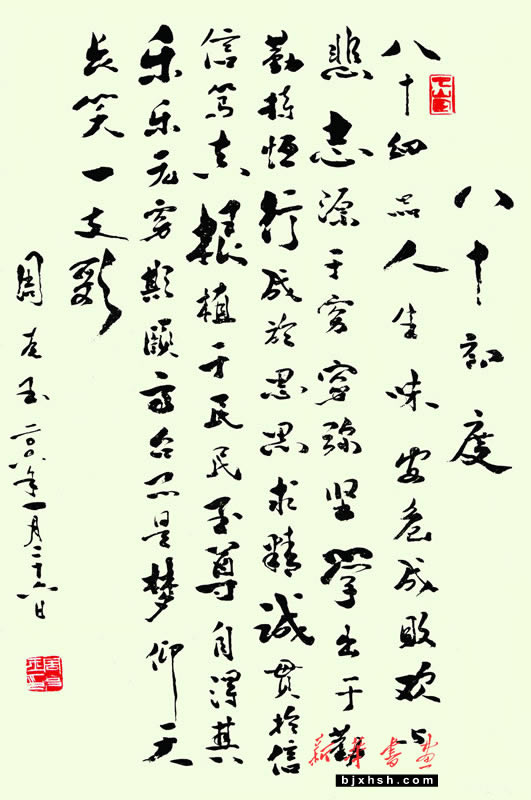 八十初度
八十细品人生味安危成败欢与
悲志源于穷穷弥坚学出于勤
勤持恒行成於思思求精诚贯於信
信笃真根植于民民至尊自得其
乐乐无穷期颐高台不是梦仰天
长笑一支歌
周克玉 二〇〇八年一月二十六日
新华书画
bjxhsh.com